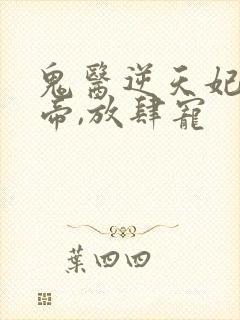 鬼醫逆天妃
帝,放肆寵
葉四四